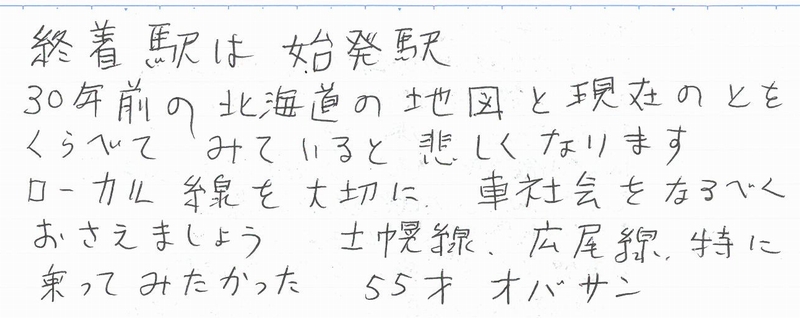 終着駅は 始発駅
30年前の 北海道の 地図と現在のとを
くらべて みていると 悲しくなります
ローカル 線を 大切に 車社会をなるべく
おさえましょう 士幌線、広尾線、特に
乗ってみたかった 55才 オバサン